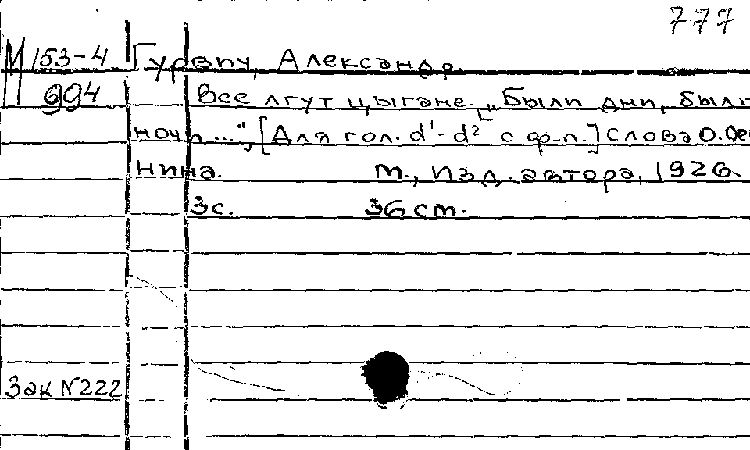 777
М 153-4 Гурвич, Александр.
994 Все лгут цыгане. „Были дни, были
ночи...", [Для гол. d¹-d² с ф-п.] Слова О. Осе
нина. М., Изд. автора, 1926.
3с. 36 см.
Зак №222